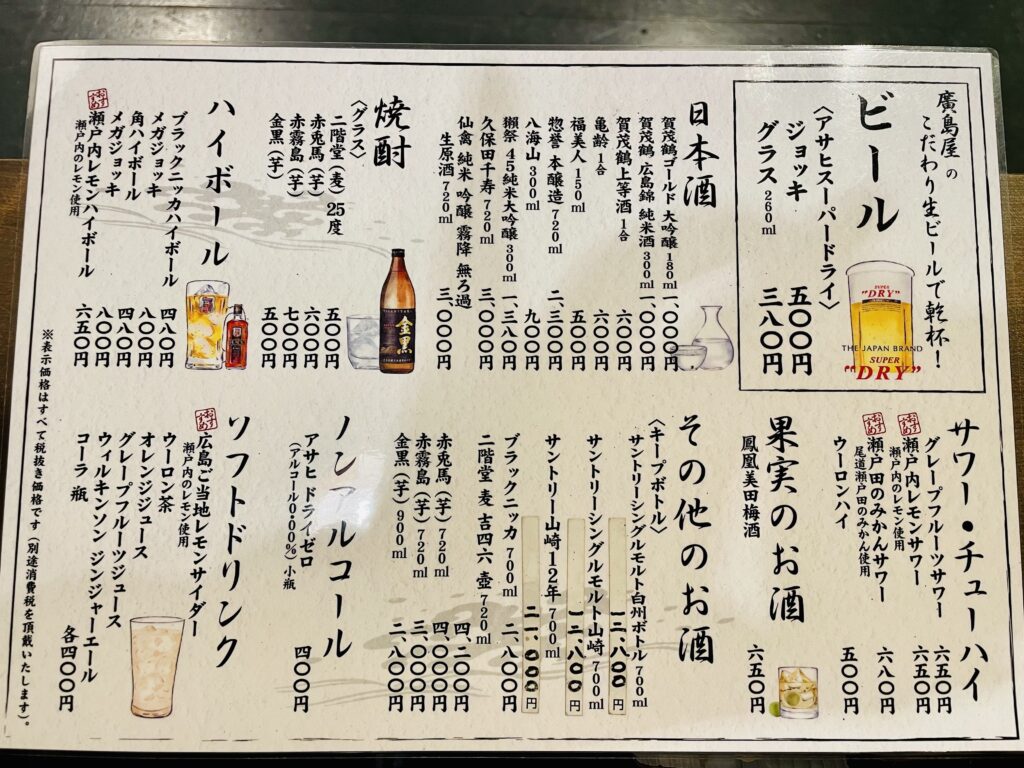 廣島屋の
こだわり生ビールで乾杯！
ビール
〈アサヒスーパードライ〉
ジョッキ 五〇〇円
グラス 260ml 三八〇円
SUPER
"DRY"
THE JAPAN BRAND
SUPER
"DRY"
日本酒
賀茂鶴ゴールド 大吟醸 180ml 一、〇〇〇円
賀茂鶴 広島錦 純米酒 300ml 一、〇〇〇円
賀茂鶴上等酒 1合 六〇〇円
亀齢 1合 六〇〇円
福美人 150ml 五〇〇円
惣誉 本醸造 720ml 二、三〇〇円
八海山 300ml 九〇〇円
獺祭 45純米大吟醸 300ml 一、三八〇円
久保田千寿 720ml 三、〇〇〇円
仙禽 純米 吟醸 霧降 無ろ過
生原酒 720ml 三、〇〇〇円
焼酎
〈グラス〉
二階堂(麦) 25度 五〇〇円
赤兎馬(芋) 六〇〇円
赤霧島(芋) 七〇〇円
金黒(芋) 五〇〇円
金黒
ハイボール
ブラックニッカハイボール 四八〇円
メガジョッキ 八〇〇円
角ハイボール 四八〇円
メガジョッキ 八〇〇円
おすすめ
瀬戸内レモンハイボール 六五〇円
瀬戸内のレモン使用
サワー・チューハイ
グレープフルーツサワー 六五〇円
おすすめ
瀬戸内レモンサワー 六五〇円
瀬戸内のレモン使用
おすすめ
瀬戸田のみかんサワー 六八〇円
尾道瀬戸田のみかん使用
ウーロンハイ 五〇〇円
果実のお酒
鳳凰美田梅酒 六五〇円
その他のお酒
〈キープボトル〉
サントリーシングルモルト白州ボトル 700ml 一三、八〇〇円
サントリーシングルモルト山崎 700ml 一三、八〇〇円
サントリー山崎12年 700ml 二一、〇〇〇円
ブラックニッカ 700ml 二、八〇〇円
二階堂 麦 吉四六 壺 720ml 四、二〇〇円
赤兎馬(芋) 720ml 四、〇〇〇円
赤霧島(芋) 720ml 三、八〇〇円
金黒(芋) 900ml 二、八〇〇円
ノンアルコール
アサヒ ドライゼロ 四〇〇円
(アルコール0.00%) 小瓶
ソフトドリンク
おすすめ
広島ご当地レモンサイダー
瀬戸内のレモン使用
ウーロン茶
オレンジジュース
グレープフルーツジュース
ウィルキンソン ジンジャーエール
コーラ 瓶
各四〇〇円
※表示価格はすべて税抜き価格です(別途消費税を頂戴いたします)。